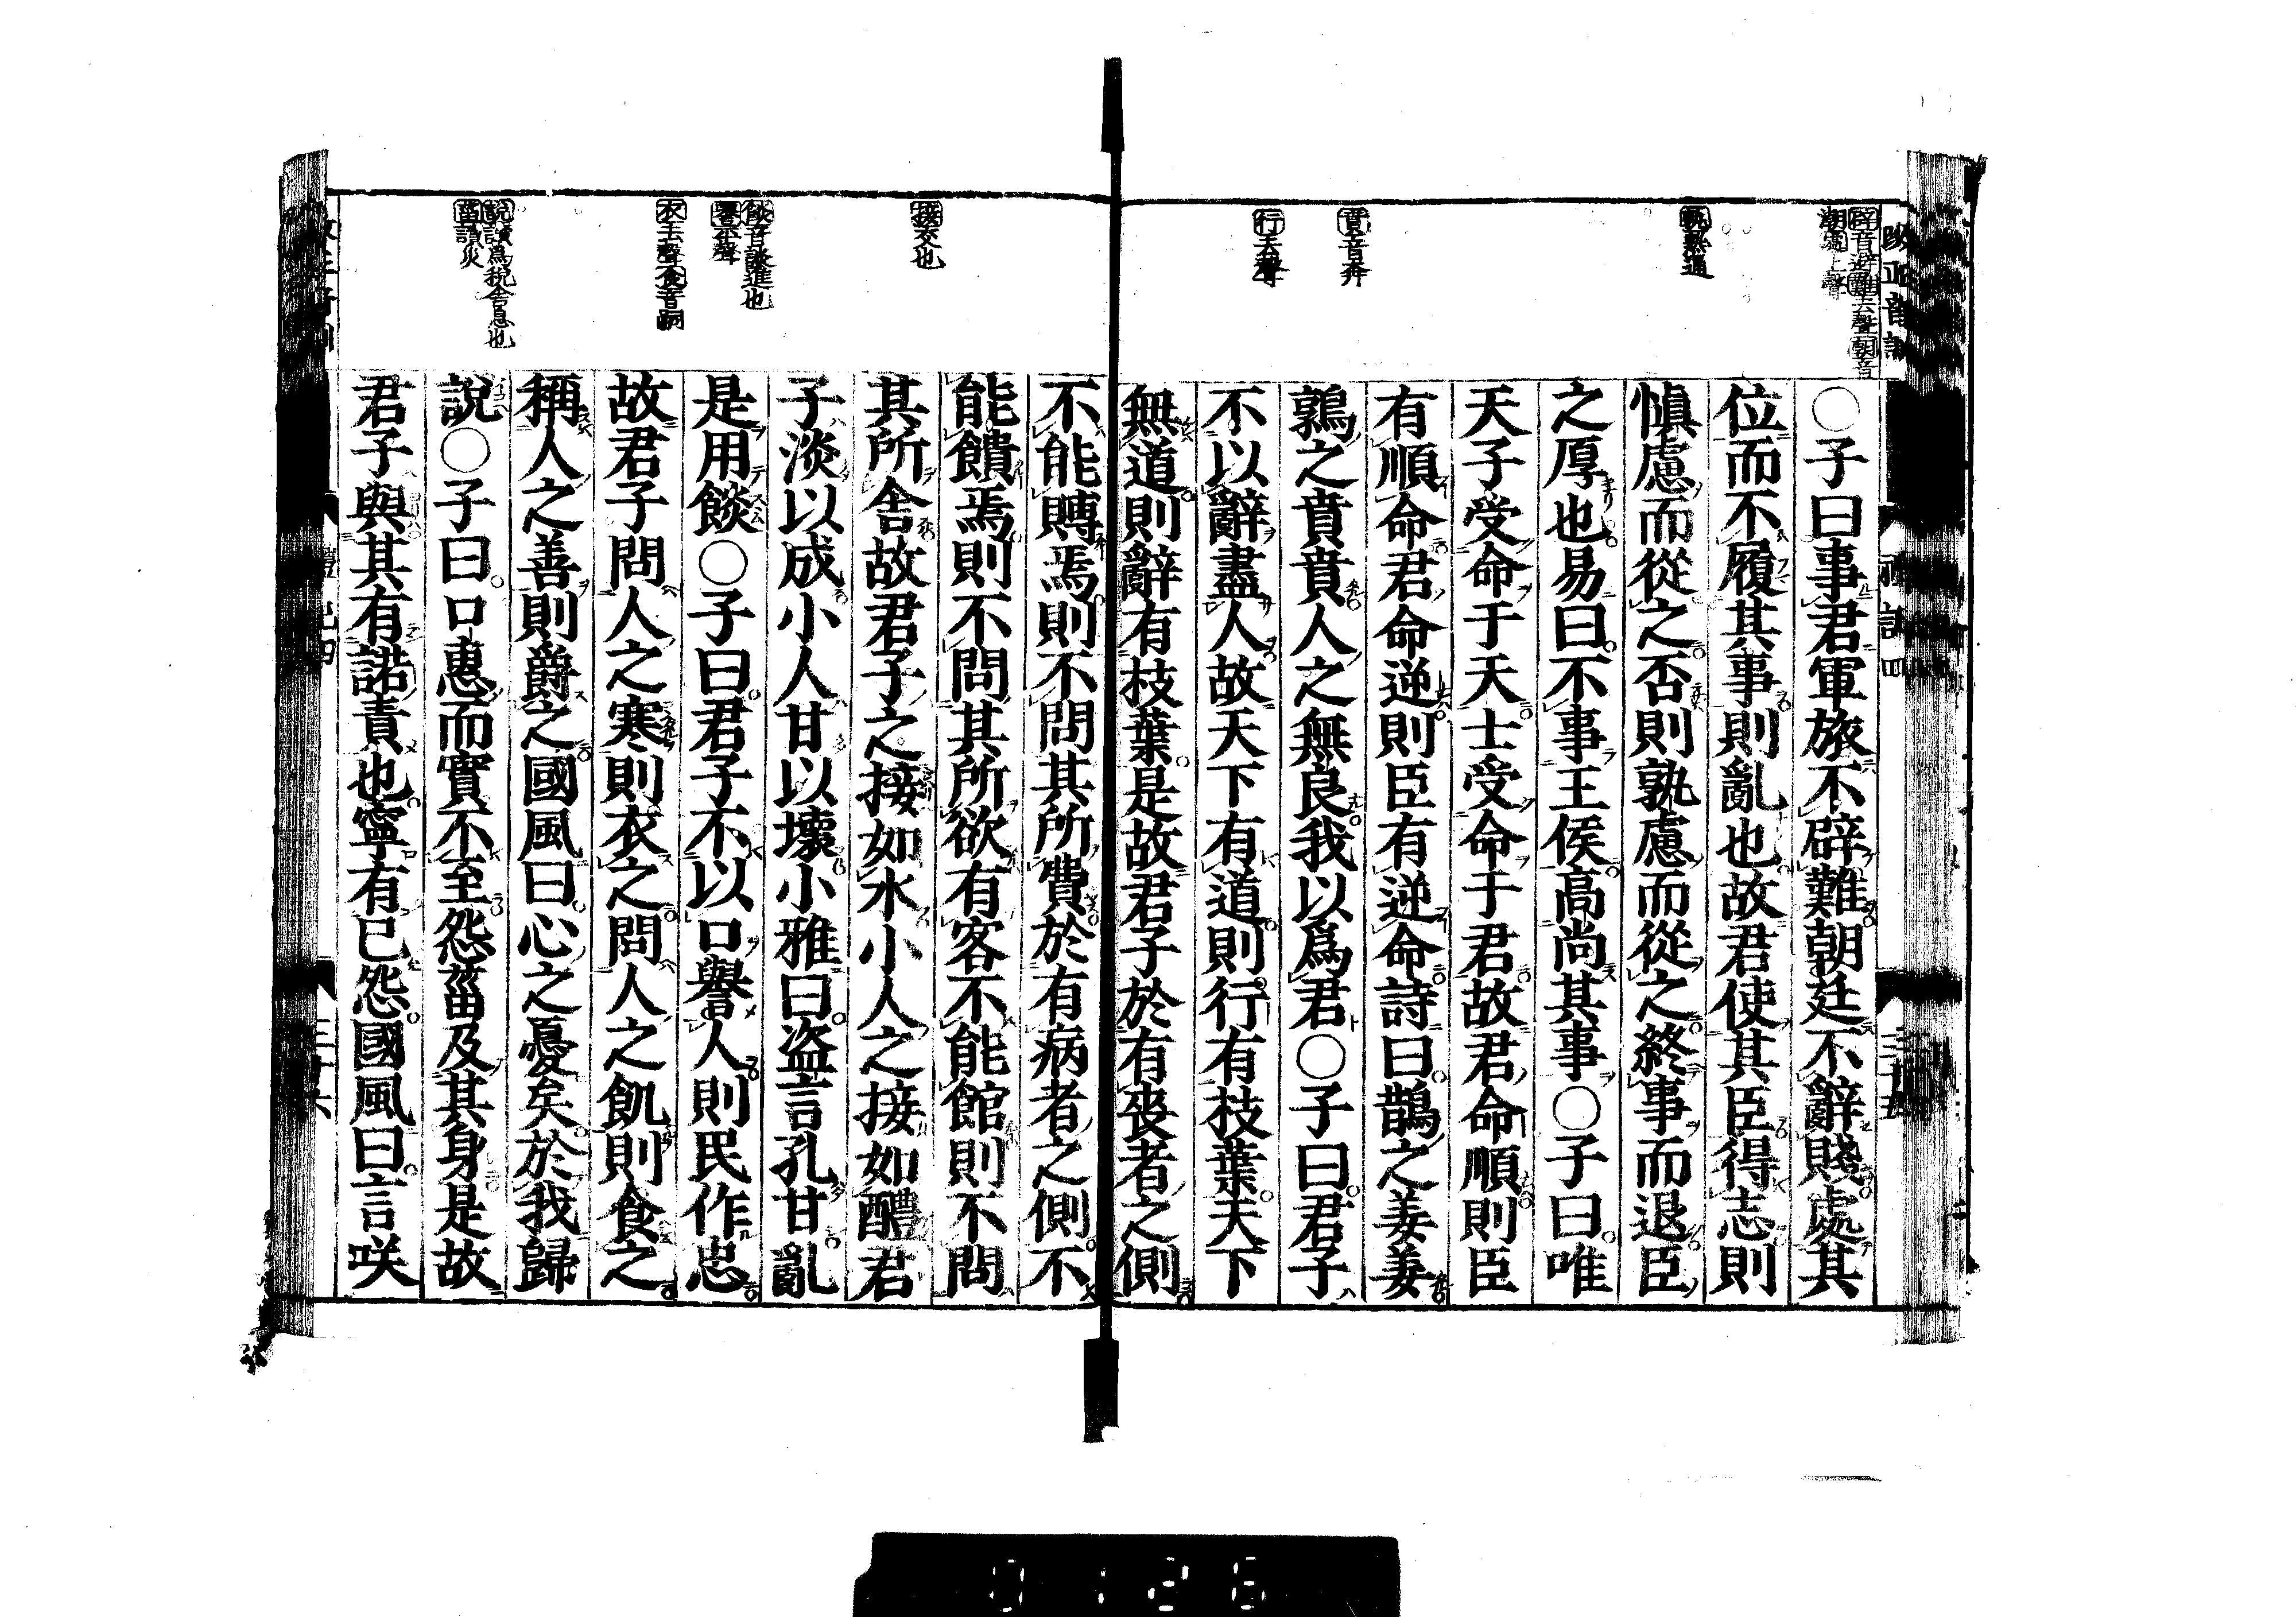 辟音避難去聲朝音
潮處上聲
孰熟通
賁音奔
行去聲
○子曰事君軍旅不辟難朝廷不辭賤處其
位而不履其事則亂也故君使其臣得志則
愼慮而從之否則孰慮而從之終事而退臣
之厚也易曰不事王侯高尚其事○子曰唯
天子受命于天士受命于君故君命順則臣
有順命君命逆則臣有逆命詩曰鵲之姜姜
鶉之賁賁人之無良我以爲君○子曰君子
不以辭盡人故天下有道則行有枝葉天下
無道則辭有枝葉是故君子於有喪者之側
接交也
餤音談進也
譽平聲
衣去聲食音嗣
說讀爲稅舍息也
菑讀災
不能賻焉則不問其所費於有病者之側不
能饋焉則不問其所欲有客不能館則不問
其所舍故君子之接如水小人之接如醴君
子淡以成小人甘以壞小雅曰盗言孔甘亂
是用餤○子曰君子不以口譽人則民作忠
故君子問人之寒則衣之問人之飢則食之
稱人之善則爵之國風曰心之憂矣於我歸
說○子曰口惠而實不至怨菑及其身是故
君子與其有諾責也寧有已怨國風曰言咲
0126